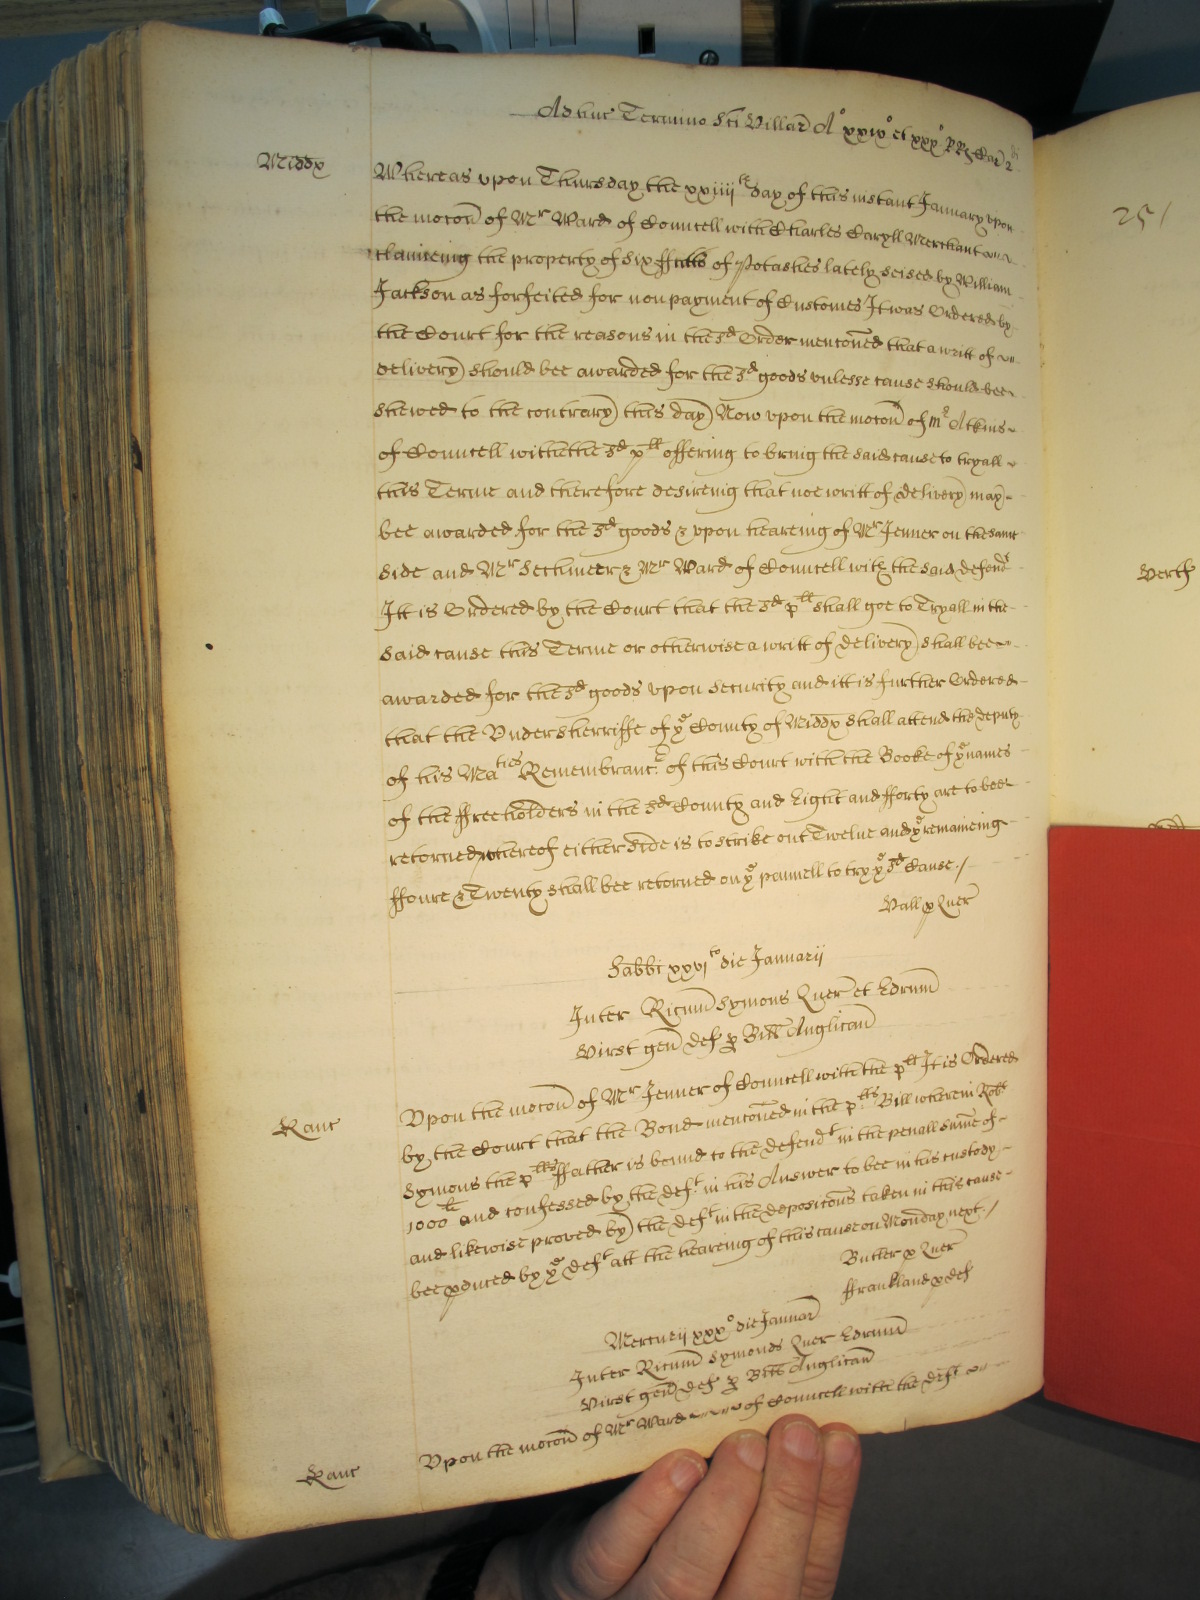 Adhuc Termino Sci Hillar̃ A° xxix° et xxx° RRs Car 2
Middx
Whereas vpon Thursday the xxiiij th day of this instant January vpon
the moc̃on of Mr Ward of Councell with Charles Caryll Merchant
claimeing the property of six ffatts of Potashes lately seised by William
Jackson as forfeited for non payment of Customes It was Ordered by
the Court for the reasons in the sd Order menc̃oned that a writt of
delivery should bee awarded for the sd goods vnlesse cause should bee
shewed to the contrary this day Now vpon the moc̃on of mr Atkins
of Councell with the sd plt offering to bring the said cause to tryall
this Terme and therefore desireing that noe writt of delivery may
bee awarded for the sd goods & vpon heareing of Mr Jenner on the same
side and Mr Sechneer & Mr Ward of Councell with the said defendt
Itt is Ordered by the Court that the sd plt shall goe to Tryall in the
said cause this Terme or otherwise a writt of delivery shall bee
awarded for the sd goods vpon security and itt is further Ordered
that the Vndersherriffe of ye County of Middx shall attend the deputy
of his Maties Remembrancr of this Court with the Booke of ye names
of the ffreeholders in the sd County and Eight and fforty are to bee
retorned whereof either side is to strike out Twelve and ye remaineing
ffoure & Twenty shall bee retorned on ye pannell to try ye sd Cause./
Hall p Quer
Sabbi xxvj to die Januarij
Inter Ricum̃ Symons Quer et Edrum̃
Hirst gen̄ def p Bill Anglican̄
Kanc
Vpon the moc̃on of Mr Jenner of Councell with the plt It is Ordered
by the Court that the Bond menc̃oned in the plts Bill wherein Robt
Symons the plts ffather is bound to the defendt in the penall sum̃e of
1000 li and confessed by the deft in his Answer to bee in his custody
and likewise proved by the deft in the deposic̃ons taken in this cause
bee pduced by ye deft att the heareing of this cause on Monday next./
Butler p Quer
ffrankland p def
Mercurij xxx° die Januar̃
Inter Ricum̃ Symonds Quer Edrum̃
Hirst gen̄ def p Bill Anglican̄
Kanc
Vpon the moc̃on of Mr Ward of Councell with the deft
251